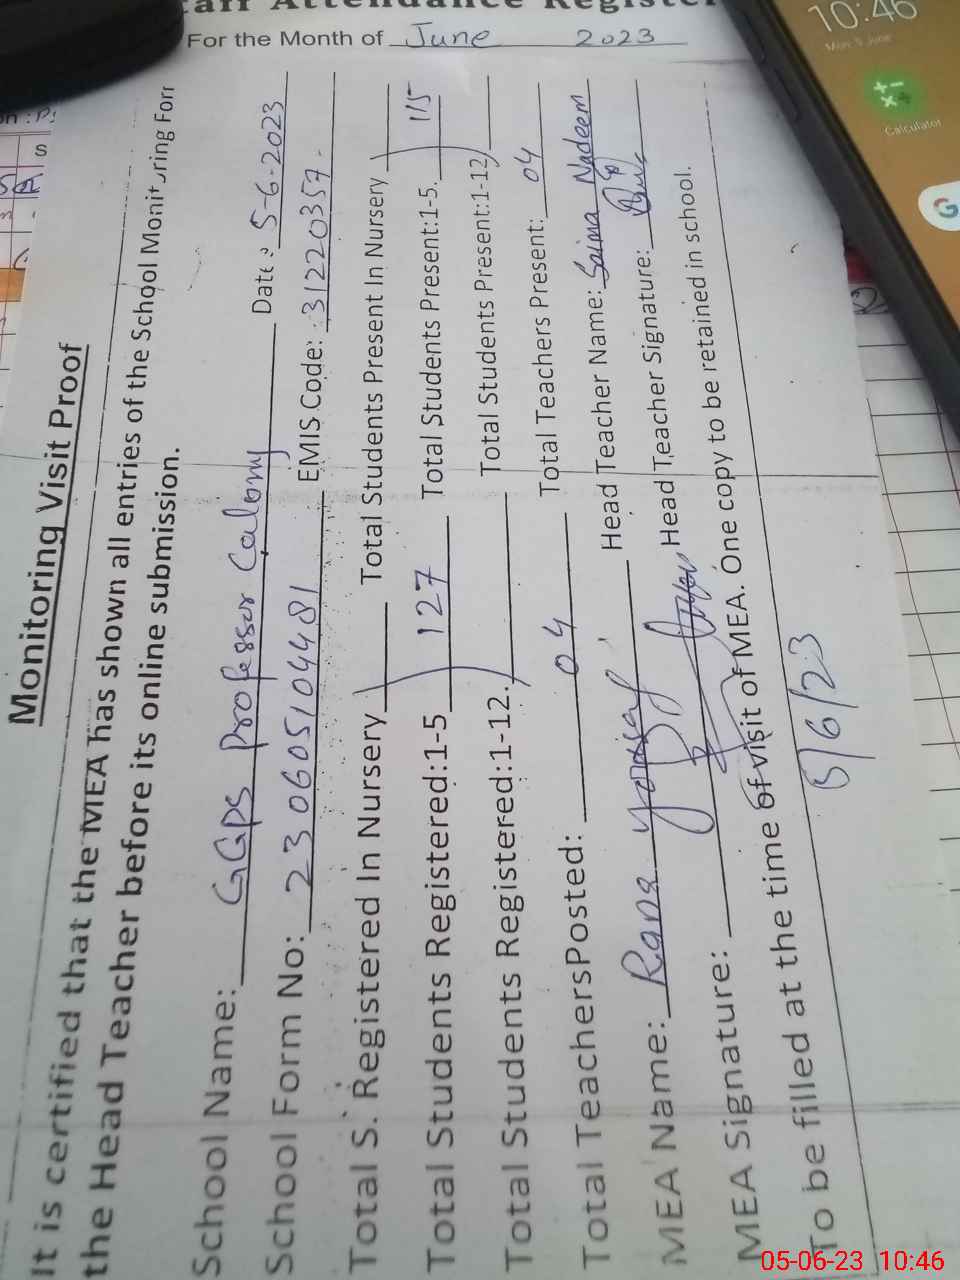 Staff Attendance Register
For the Month of June 2023
10:46
Mon, 5 June
Calculator
Monitoring Visit Proof
It is certified that the MEA has shown all entries of the School Monitoring Form
the Head Teacher before its online submission.
School Name: GGPS Professor Colony Date: 5-6-2023
School Form No: 230605104481 EMIS Code: 31220357
Total S. Registered In Nursery Total Students Present In Nursery
Total Students Registered:1-5 127 Total Students Present:1-5. 115
Total Students Registered:1-12. Total Students Present:1-12
Total TeachersPosted: 04 Total Teachers Present: 04
MEA Name: Rana Head Teacher Name: Saima Nadeem
MEA Signature: Head Teacher Signature:
To be filled at the time of visit of MEA. One copy to be retained in school.
5/6/23
05-06-23 10:46